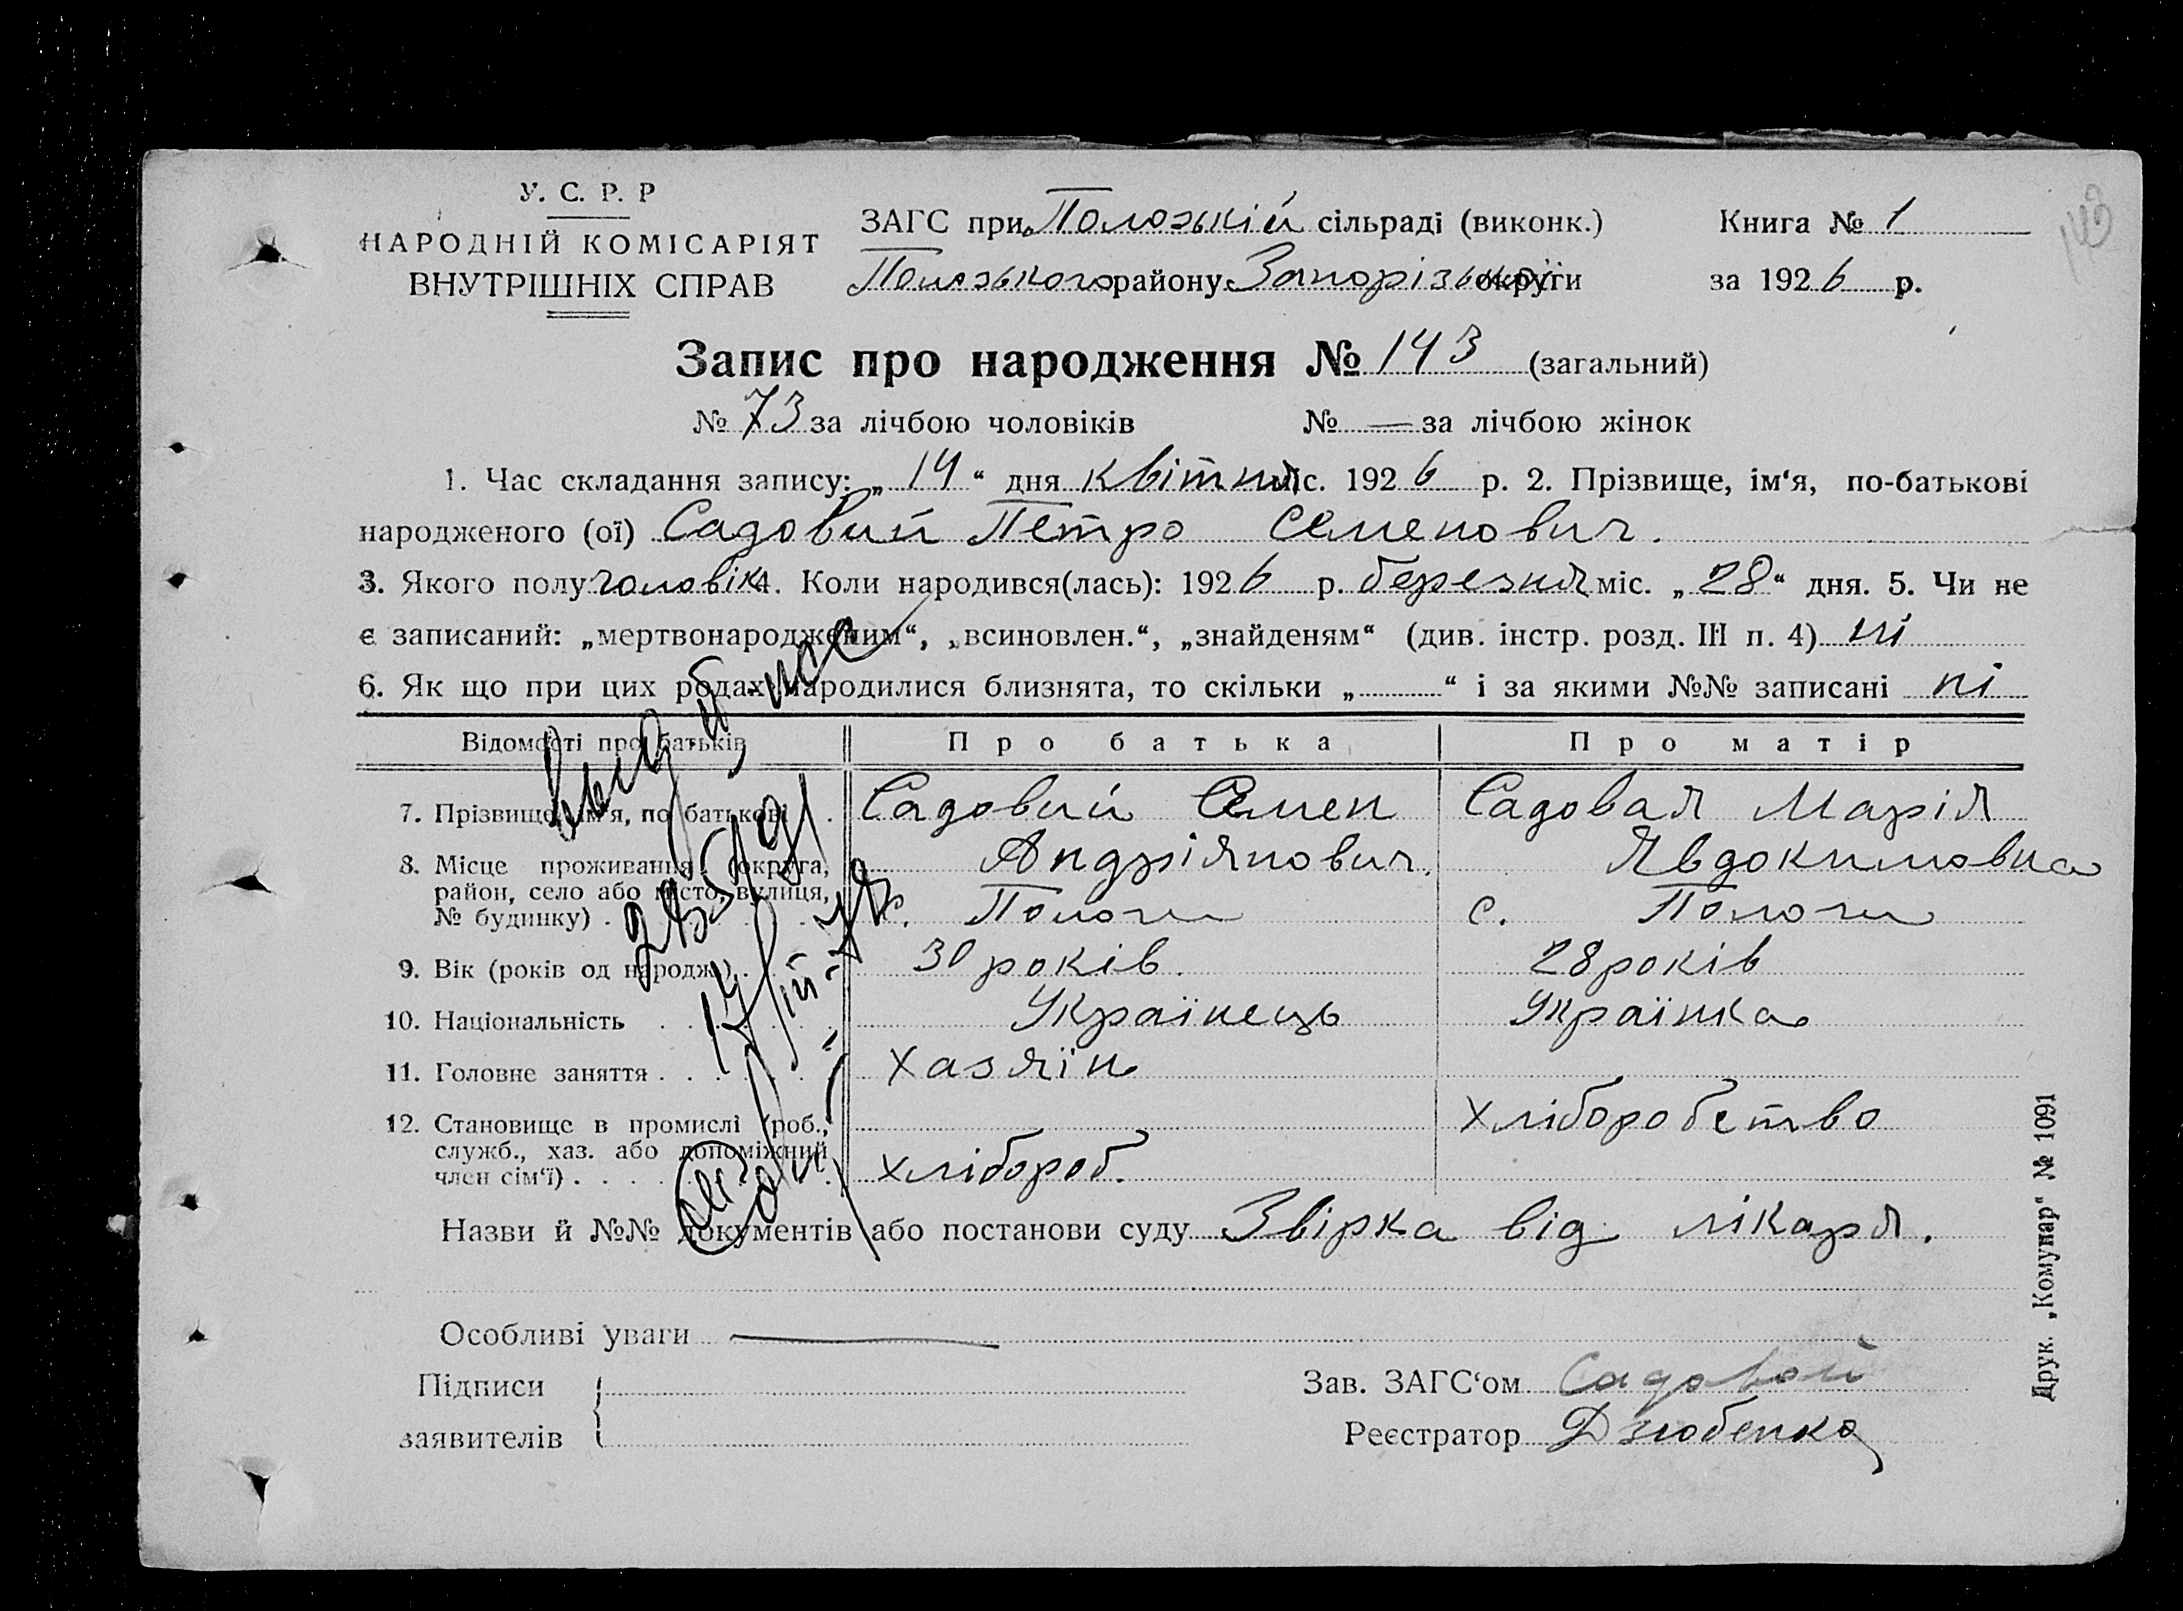 У. С. Р. Р
НАРОДНІЙ КОМІСАРІЯТ
ВНУТРІШНІХ СПРАВ
ЗАГС при Полозькій сільраді (виконк.) Книга № 1
Полозького району Запорізької округи за 1926 р.
143
Запис про народження № 143 (загальний)
№ 73 за лічбою чоловіків № — за лічбою жінок
1. Час складання запису: „14“ дня квітня міс. 1926 р. 2. Прізвище, ім‘я, по-батькові
народженого (ої) Садовий Петро Семенович.
3. Якого полу чоловік 4. Коли народився(лась): 1926 р. березня міс. „28“ дня. 5. Чи не
є записаний: „мертвонародженим“, „всиновлен.“, „знайденям“ (див. інстр. розд. III п. 4) ні
6. Як що при цих родах народилися близнята, то скільки „ “ і за якими №№ записані ні
Відомості про батьків Про батька Про матір
7. Прізвище, ім‘я, по батькові . Садовий Семен Садовая Марія
Андріянович. Явдокимовна
8. Місце проживання (округа,
район, село або місто, вулиця,
№ будинку) . с. Пологи с. Пологи
9. Вік (років од народж.) . 30 років. 28 років
10. Національність Українець Українка
11. Головне заняття . хазяїн
12. Становище в промислі (роб., хліборобство
служб., хаз. або допоміжний
член сім‘ї) . хлібороб.
Назви й №№ документів або постанови суду Звірка від лікаря.
Особливі уваги —
Підписи
заявителів
Зав. ЗАГС‘ом Садовой
Реєстратор Дзюбенко
Друк. „Комунар“ № 1091